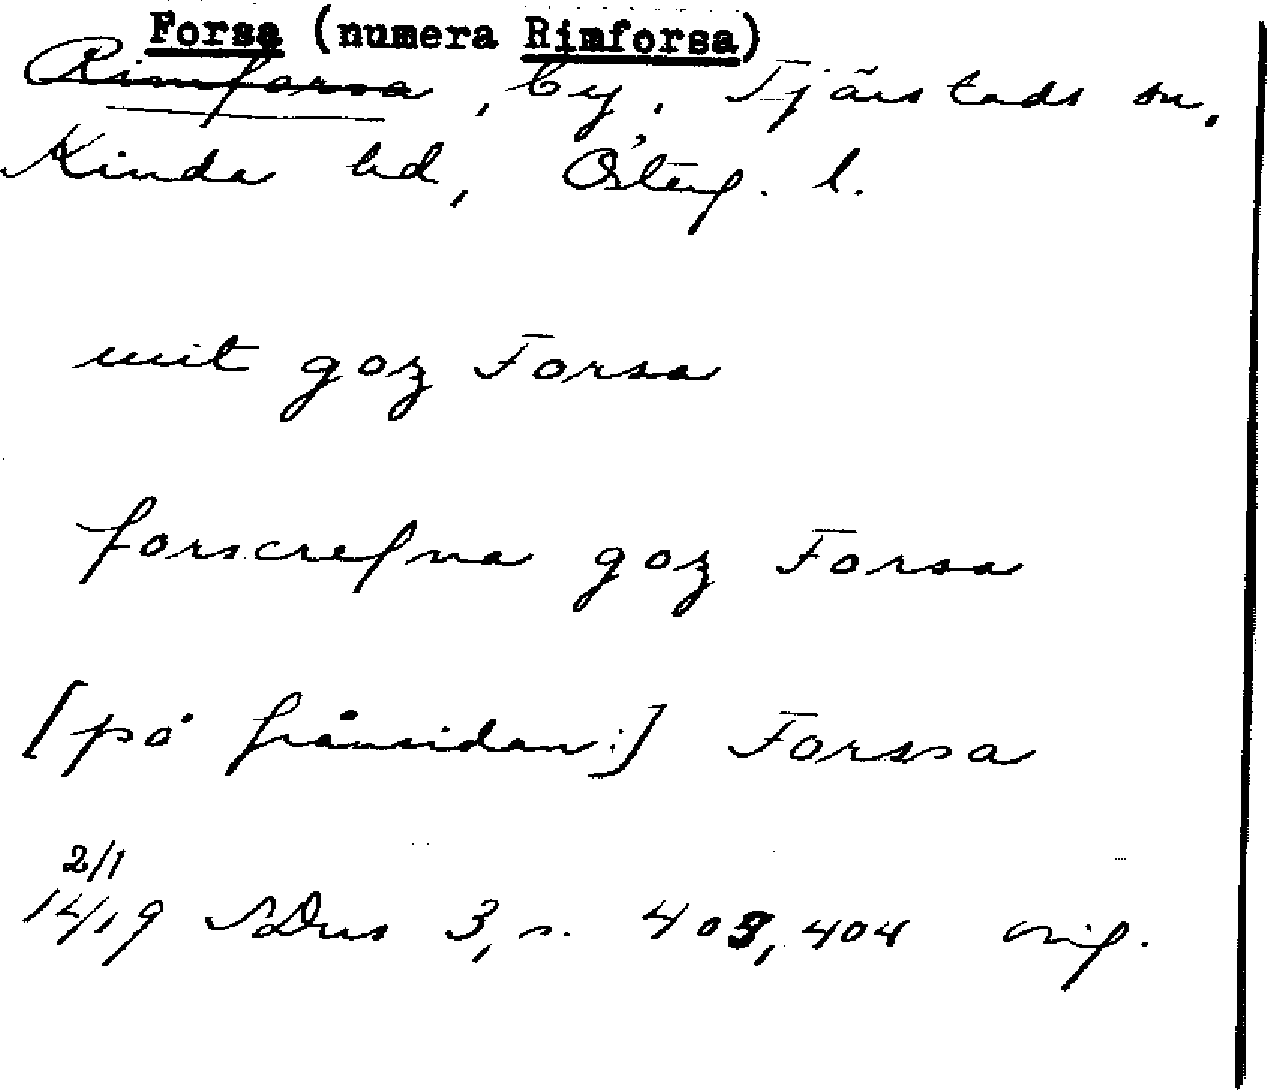 Forsa (numera Rimforsa)
Rimforsa, by, Tjärstads sn,
Kinda hd, Österg. l.
mit goz Forsa
forscrefna goz Forsa
[på frånsidan:] Forssa
2/1
1419 SDns 3, s. 403, 404 orig.